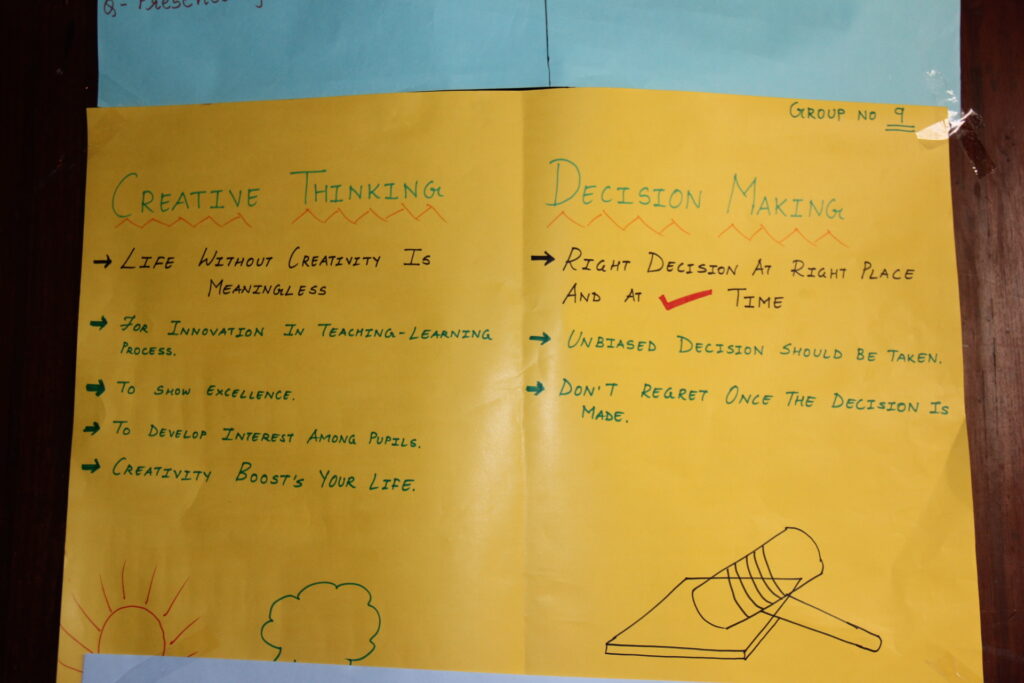 GROUP NO 9
CREATIVE THINKING
→ LIFE WITHOUT CREATIVITY IS
MEANINGLESS
→ FOR INNOVATION IN TEACHING-LEARNING
PROCESS.
→ TO SHOW EXCELLENCE.
→ TO DEVELOP INTEREST AMONG PUPILS.
→ CREATIVITY BOOST'S YOUR LIFE.
DECISION MAKING
→ RIGHT DECISION AT RIGHT PLACE
AND AT ✓ TIME
→ UNBIASED DECISION SHOULD BE TAKEN.
→ DON'T REGRET ONCE THE DECISION IS
MADE.